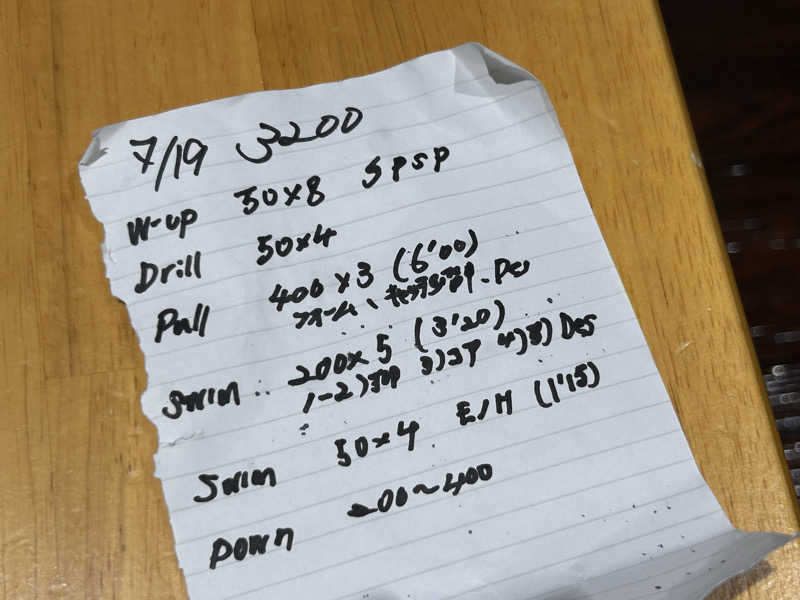 7/19 3200
W-up 50×8 SPSP
Drill 50×4
Pull 400×3 (6'00)
フォーム、キャッチ Des
Swim 200×5 (3'20)
1-2) 3)コア 4)5) Des
Swim 50×4 E/H (1'15)
Down 200〜400